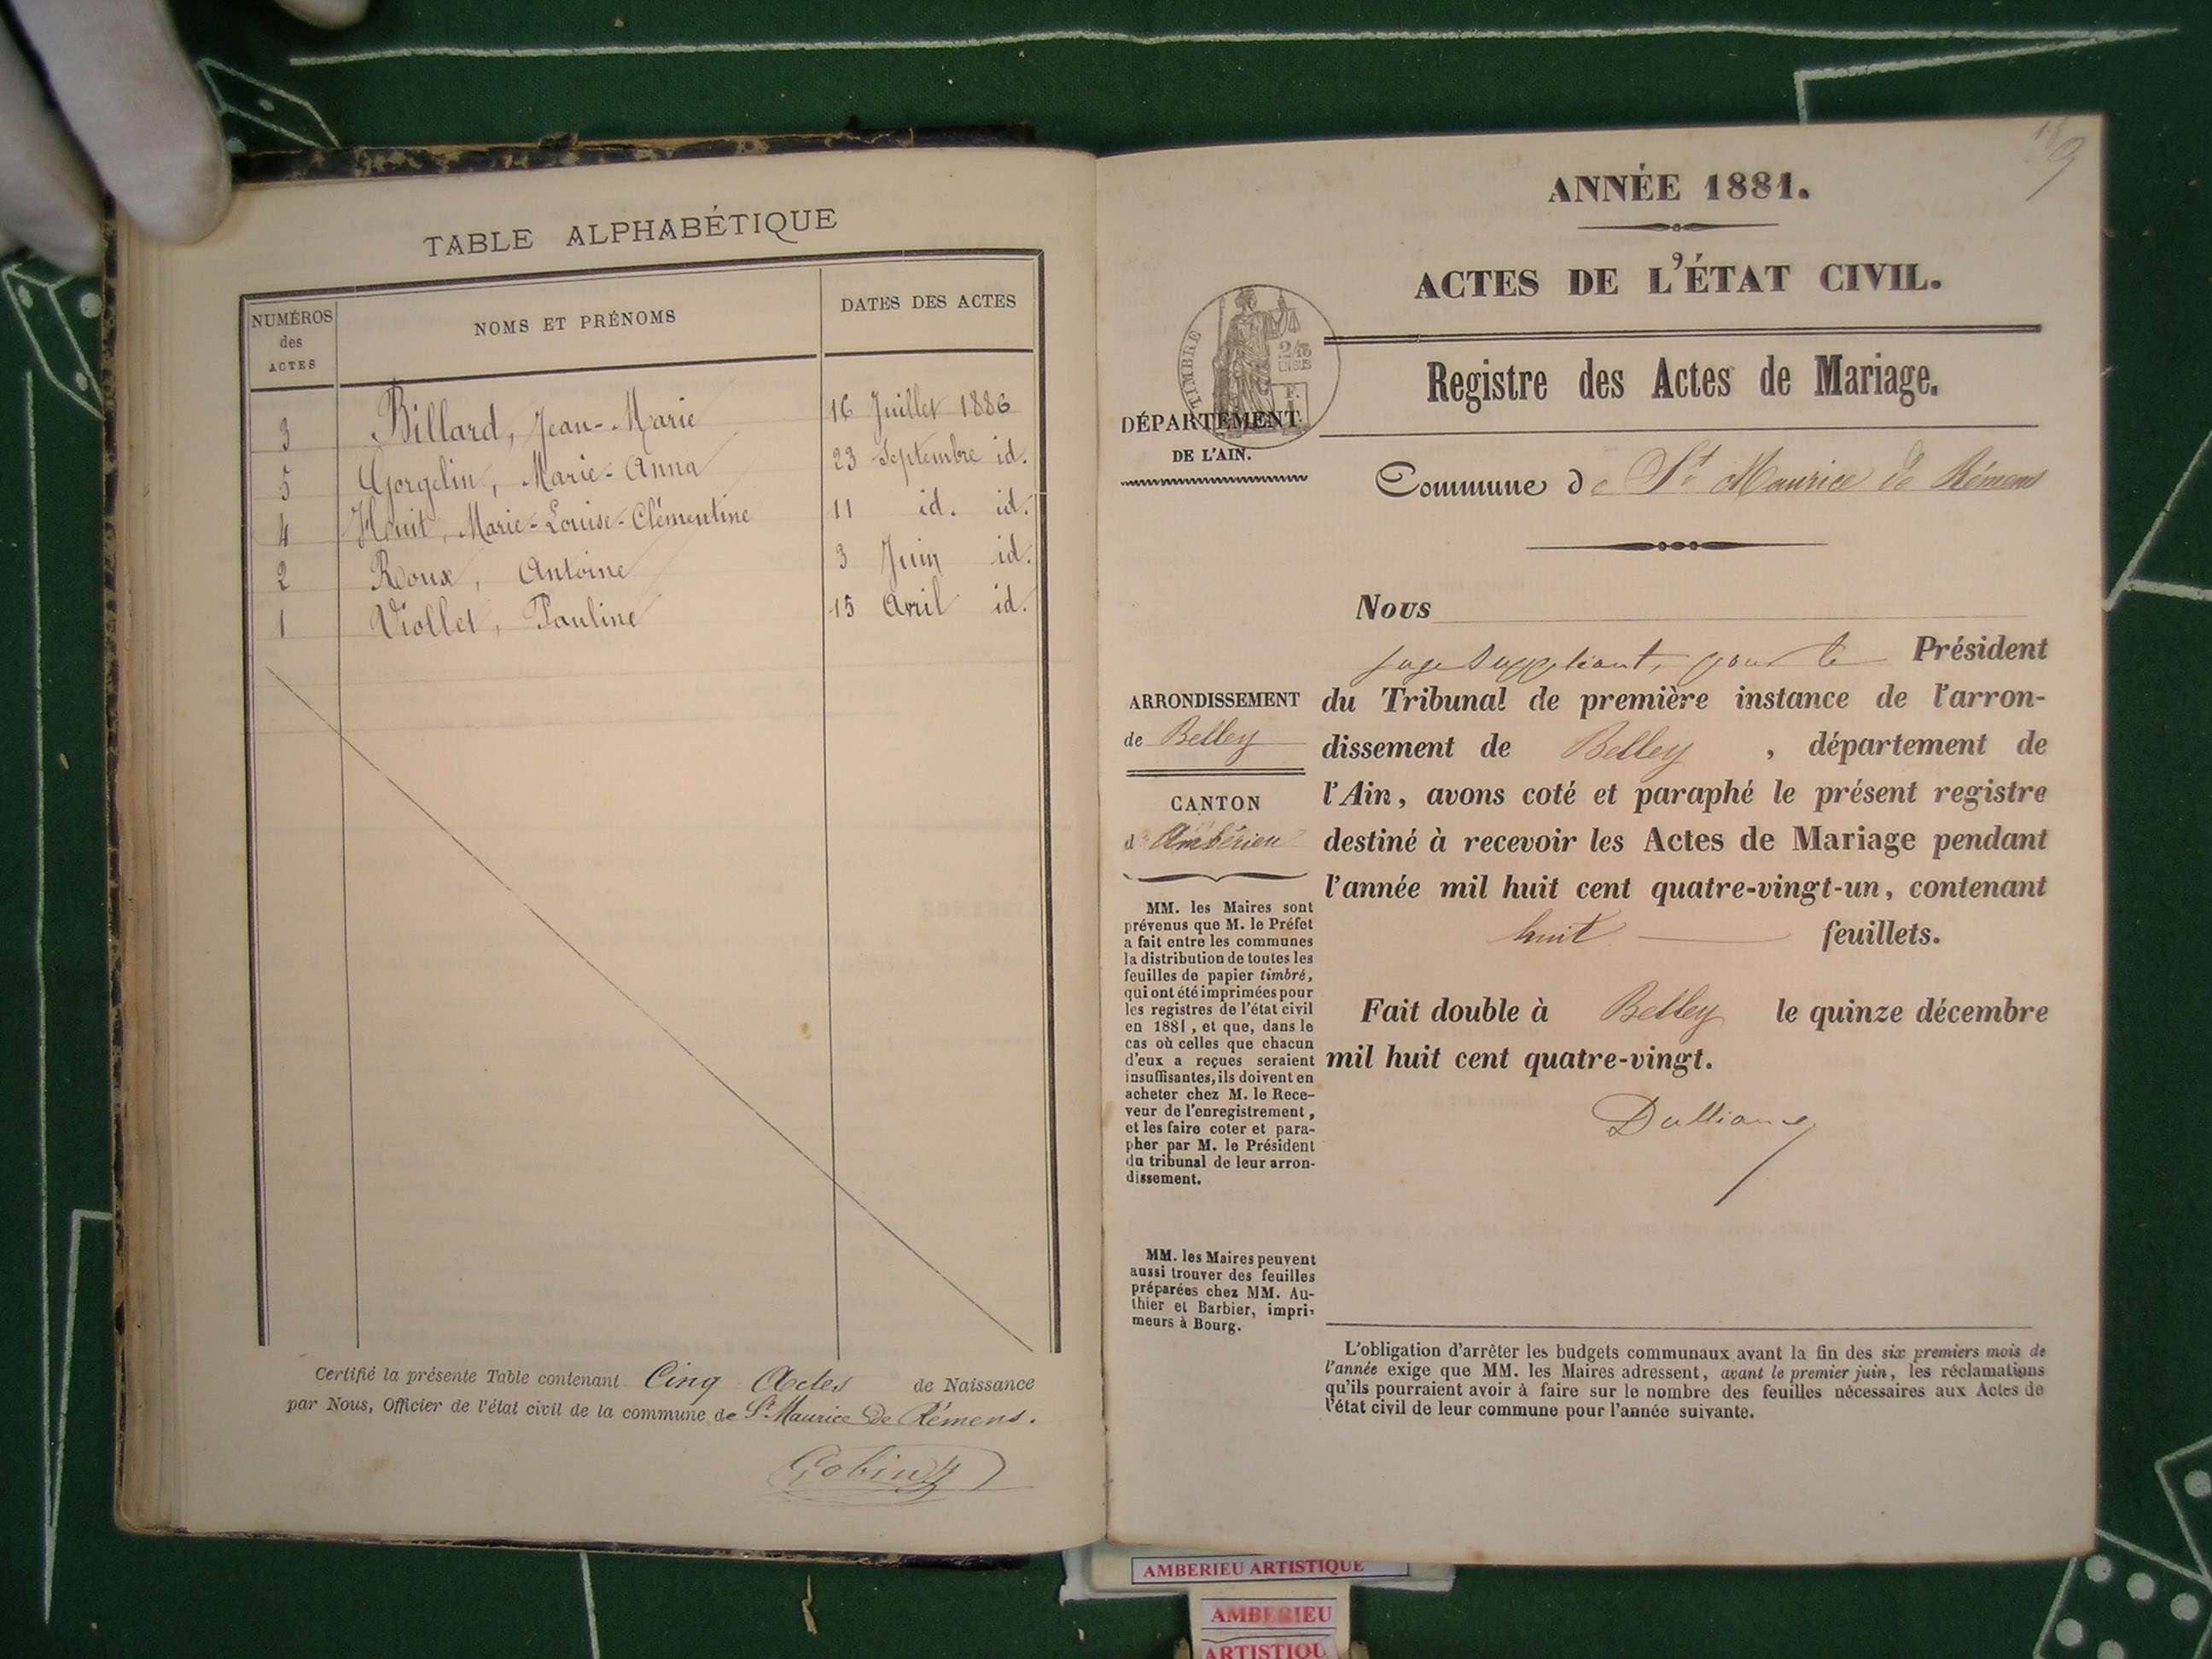 TABLE ALPHABÉTIQUE
NUMÉROS
des
ACTES
NOMS ET PRÉNOMS
DATES DES ACTES
3 Billard, Jean-Marie 16 Juillet 1886
5 Gorgelin, Marie-Anna 23 Septembre id.
4 Marie-Louise-Clémentine 11 id. id.
2 Roux, Antoine 3 Juin id.
1 Viollet, Pauline 15 Avril id.
Certifié la présente Table contenant Cinq Actes de Naissance
par Nous, Officier de l'état civil de la commune de St Maurice de Rémens.
Gobin
9
ANNÉE 1881.
ACTES DE L'ÉTAT CIVIL.
TIMBRE
Registre des Actes de Mariage.
DÉPARTEMENT
DE L'AIN.
Commune de St Maurice de Rémens
Nous
juge suppléant, pour le Président
du Tribunal de première instance de l'arron-
dissement de Belley, département de
l'Ain, avons coté et paraphé le présent registre
destiné à recevoir les Actes de Mariage pendant
l'année mil huit cent quatre-vingt-un, contenant
huit feuillets.
Fait double à Belley le quinze décembre
mil huit cent quatre-vingt.
ARRONDISSEMENT
de Belley
CANTON
d'Ambérieu
MM. les Maires sont
prévenus que M. le Préfet
a fait entre les communes
la distribution de toutes les
feuilles de papier timbré,
qui ont été imprimées pour
les registres de l'état civil
en 1881, et que, dans le
cas où celles que chacun
d'eux a reçues seraient
insuffisantes, ils doivent en
acheter chez M. le Rece-
veur de l'enregistrement,
et les faire coter et para-
pher par M. le Président
du tribunal de leur arron-
dissement.
MM. les Maires peuvent
aussi trouver des feuilles
préparées chez MM. Au-
thier et Barbier, impri-
meurs à Bourg.
L'obligation d'arrêter les budgets communaux avant la fin des six premiers mois de
l'année exige que MM. les Maires adressent, avant le premier juin, les réclamations
qu'ils pourraient avoir à faire sur le nombre des feuilles nécessaires aux Actes de
l'état civil de leur commune pour l'année suivante.
AMBERIEU ARTISTIQUE
AMBERIEU
ARTISTIQU